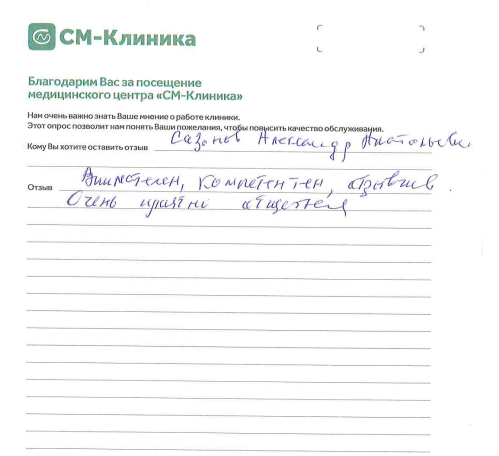 СМ-Клиника
Благодарим Вас за посещение
медицинского центра «СМ-Клиника»
Нам очень важно знать Ваше мнение о работе клиники.
Этот опрос позволит нам понять Ваши пожелания, чтобы повысить качество обслуживания.
Кому Вы хотите оставить отзыв Сазонов Александр Анатольевич
Отзыв Внимателен, компетентен, отзывчив
Очень приятно общаться